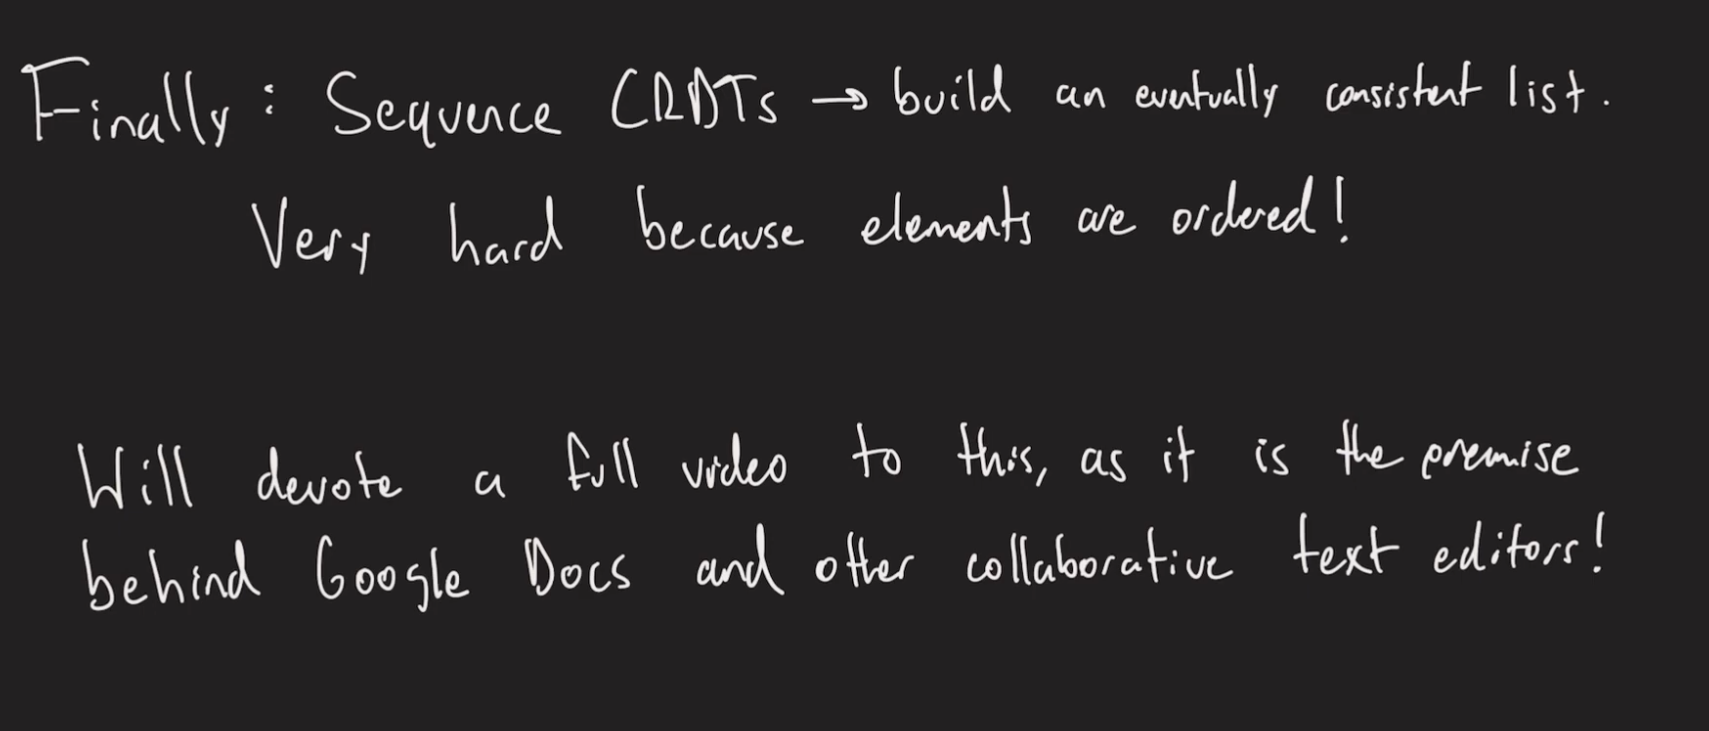 Finally: Sequence CRDTs → build an eventually consistent list.
Very hard because elements are ordered!
Will devote a full video to this, as it is the premise
behind Google Docs and other collaborative text editors!